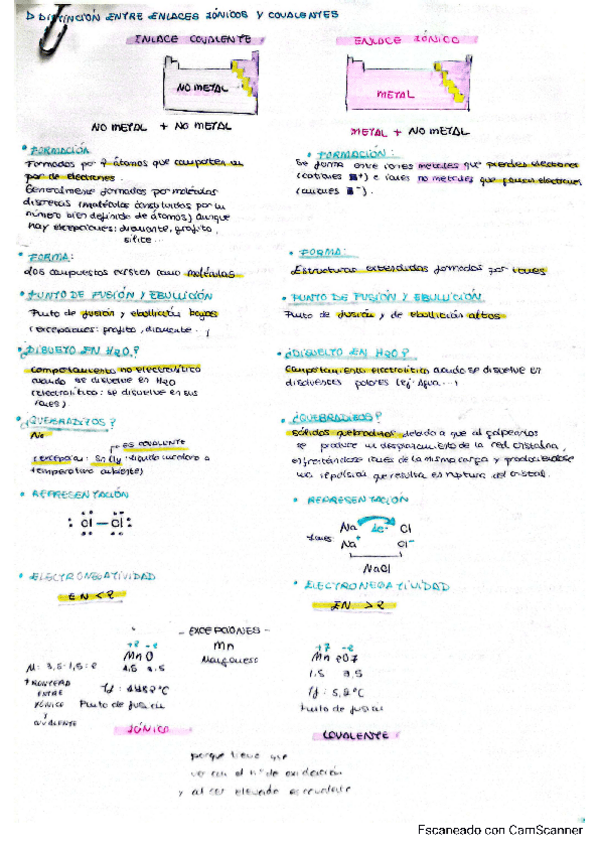 DISTINCIÓN ENTRE ENLACES IÓNICOS Y COVALENTES
ENLACE COVALENTE
NO METAL
NO METAL + NO METAL
• FORMACIÓN
Formados por átomos que comparten un
par de electrones.
Generalmente formados por moléculas
discretas (moléculas constituidas por un
número bien definido de átomos) aunque
hay excepciones: diamante, grafito,
sílice...
• FORMA:
Los compuestos existen como moléculas
• PUNTO DE FUSIÓN Y EBULLICIÓN
Punto de fusión y ebullición bajos
(excepciones: grafito, diamante...)
• ¿DISUELTO EN H2O?
Comportamiento no electrolítico
cuando se disuelve en H2O
(electrolítico: se disuelve en sus
iones)
• ¿QUEBRADIZOS?
No
ES COVALENTE
(excepción: líquido incoloro a
temperatura ambiente)
• REPRESENTACIÓN
Cl — Cl
• ELECTRONEGATIVIDAD
EN < 2
ENLACE IÓNICO
METAL
METAL + NO METAL
• FORMACIÓN:
Se forma entre iones metales que pierden electrones
(cationes +) e iones no metales que ganan electrones
(aniones -).
• FORMA:
Estructuras extendidas formadas por iones
• PUNTO DE FUSIÓN Y EBULLICIÓN
Punto de fusión y de ebullición altos
• ¿DISUELTO EN H2O?
Comportamiento electrolítico cuando se disuelve en
disolventes polares (ej: Agua...)
• ¿QUEBRADIZOS?
Sólidos quebradizos debido a que al golpearlos
se produce un desplazamiento de la red cristalina,
enfrentándose iones de la misma carga y produciéndose
una repulsión que resulta en ruptura del cristal.
• REPRESENTACIÓN
Na 1e- Cl
iones Na+ Cl-
NaCl
• ELECTRONEGATIVIDAD
EN > 2
- EXCEPCIONES -
Mn
Manganeso
+2 -2
MnO
1,5 3,5
3,5-1,5 = 2
FRONTERA
ENTRE
IÓNICO
Y
COVALENTE
Punto de fusión
IÓNICO
+7 -2
Mn2O7
1,5 3,5
Tf: 5,9°C
Punto de fusión
COVALENTE
porque tiene que
ver con el nº de oxidación
y al ser elevado es covalente
Escaneado con CamScanner